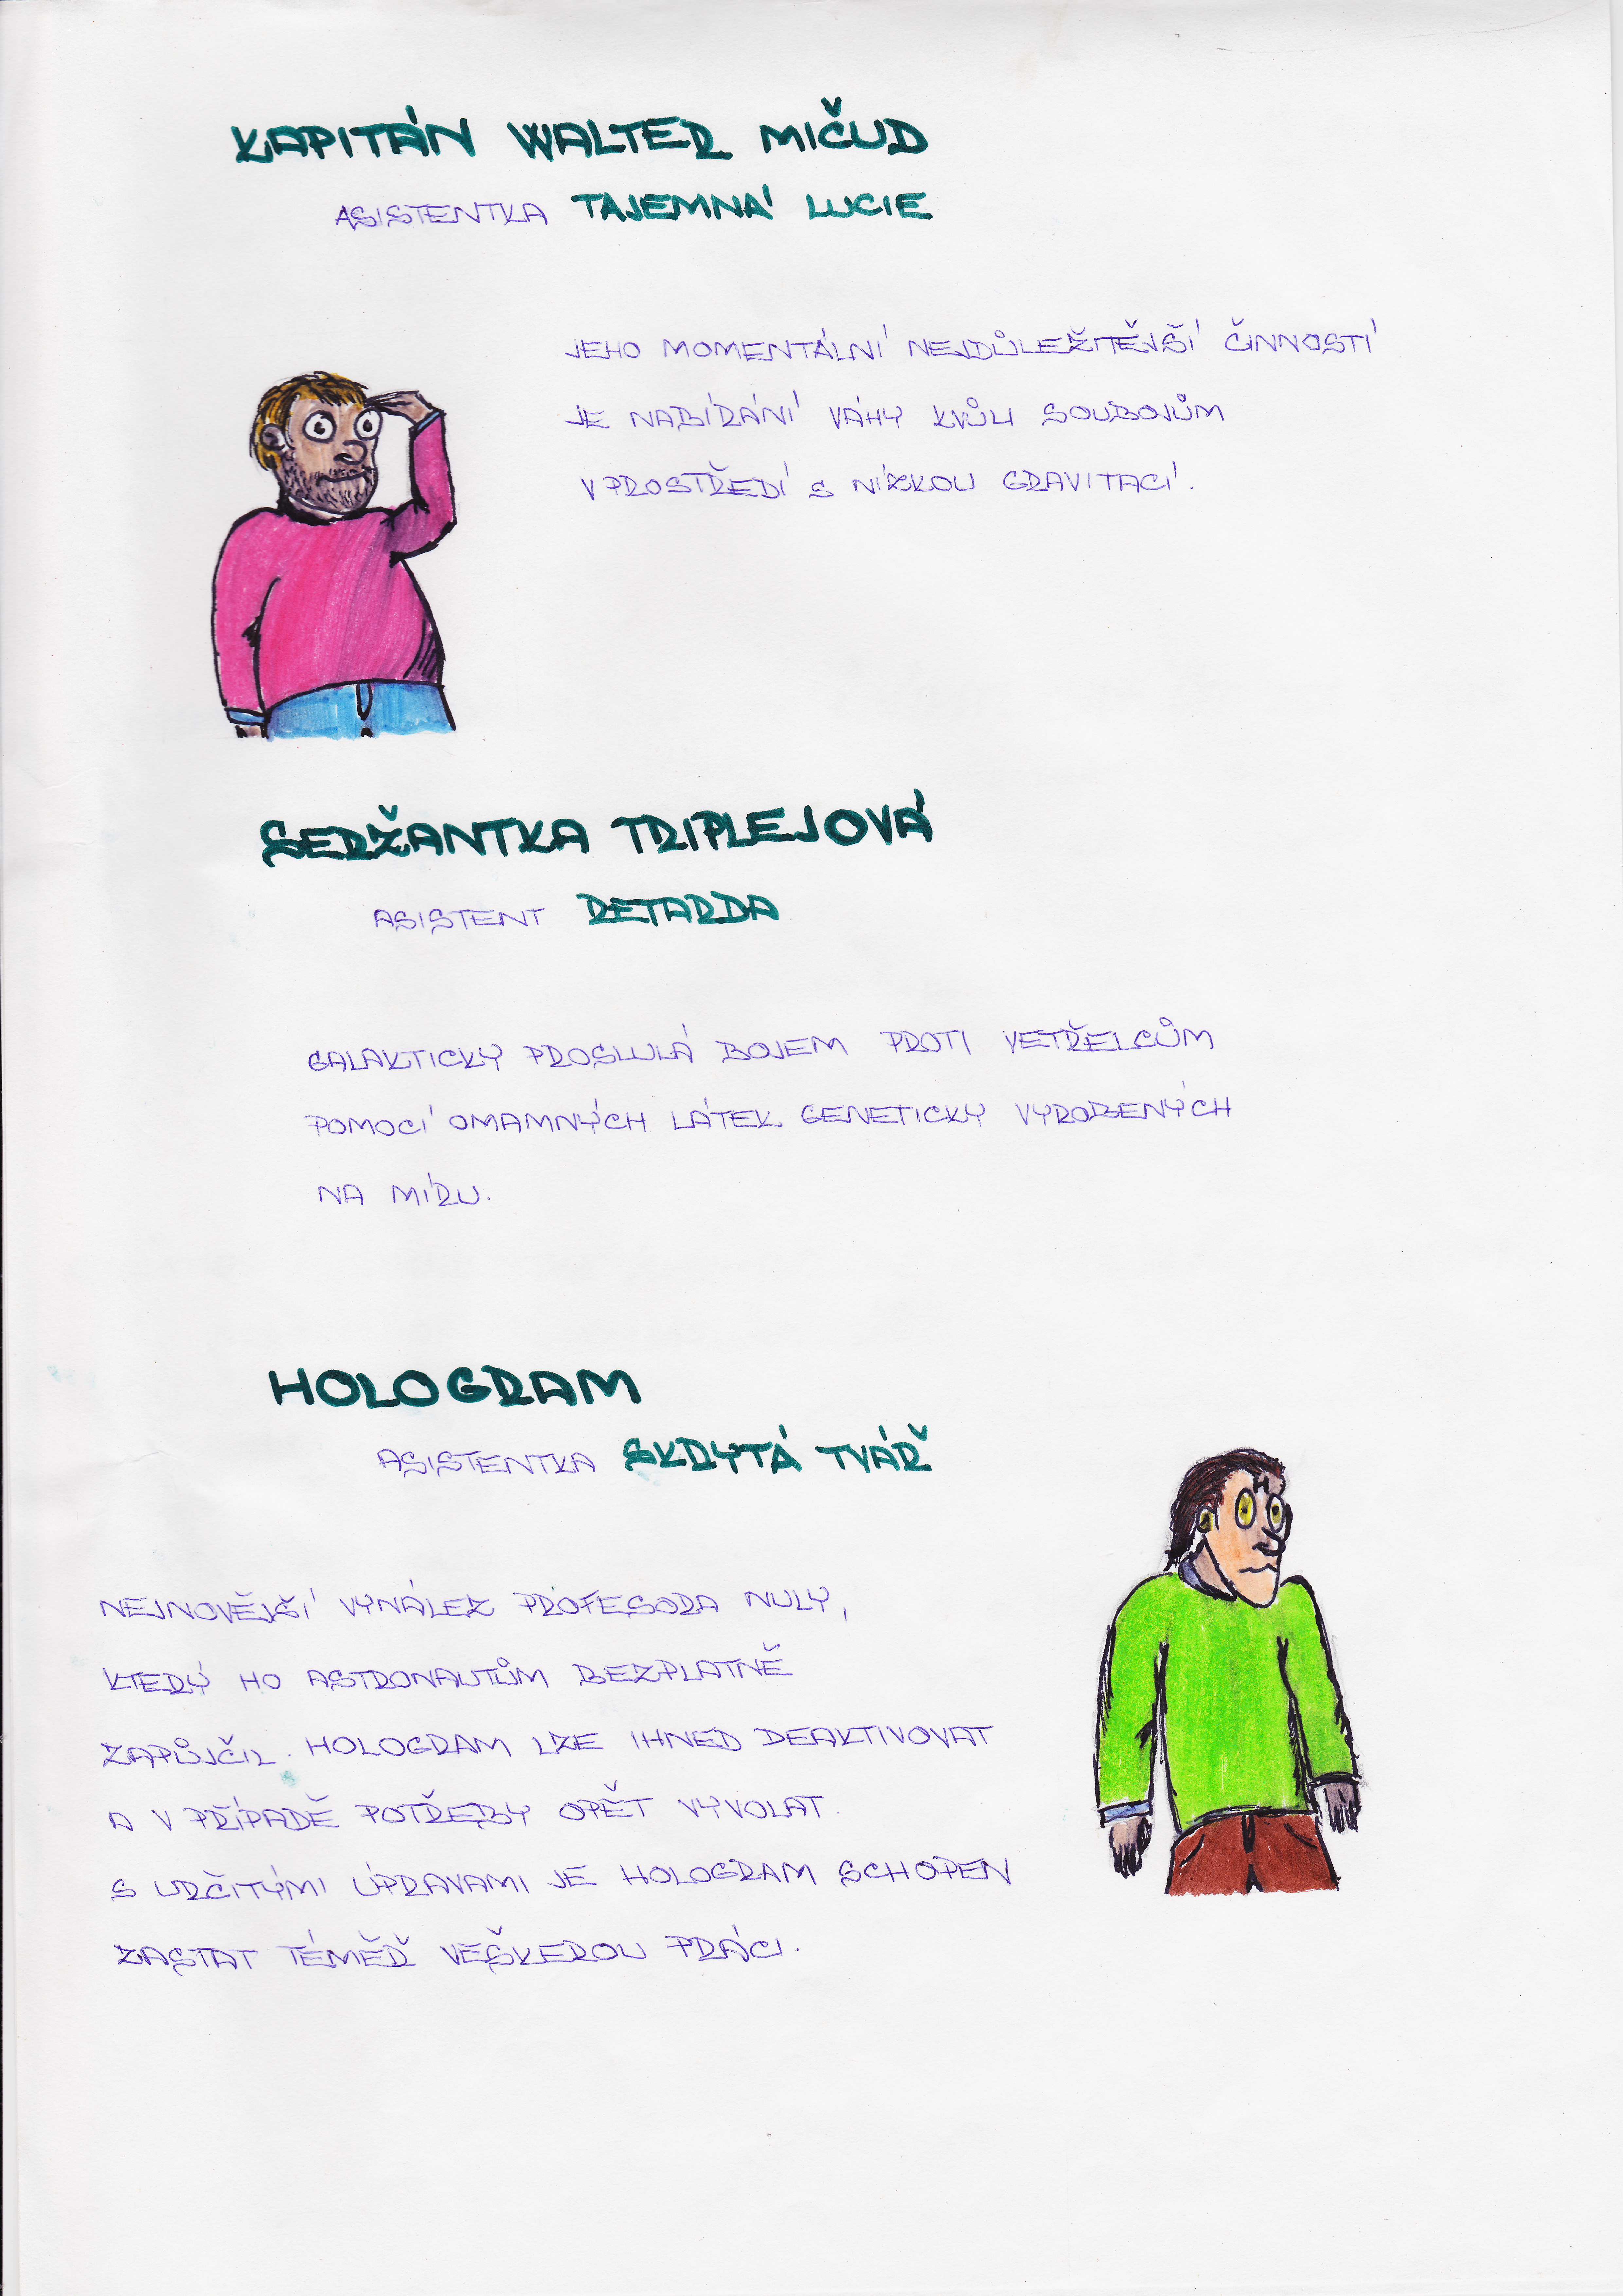 KAPITÁN WALTER MIČUD
ASISTENTKA TAJEMNÁ LUCIE
JEHO MOMENTÁLNÍ NEJDŮLEŽITĚJŠÍ ČINNOSTÍ
JE NABÍRÁNÍ VÁHY KVŮLI SOUBOJŮM
V PROSTŘEDÍ S NÍZKOU GRAVITACÍ.
SERŽANTKA TRIPLEJOVÁ
ASISTENT RETARDA
GALAKTICKY PROSLULÁ BOJEM PROTI VETŘELCŮM
POMOCÍ OMAMNÝCH LÁTEK GENETICKY VYROBENÝCH
NA MÍRU.
HOLOGRAM
ASISTENTKA SKRYTÁ TVÁŘ
H
NEJNOVĚJŠÍ VYNÁLEZ PROFESORA NULY,
KTERÝ HO ASTRONAUTŮM BEZPLATNĚ
ZAPŮJČIL. HOLOGRAM LZE IHNED DEAKTIVOVAT
A V PŘÍPADĚ POTŘEBY OPĚT VYVOLAT.
S URČITÝMI ÚPRAVAMI JE HOLOGRAM SCHOPEN
ZASTAT TÉMĚŘ VEŠKEROU PRÁCI.